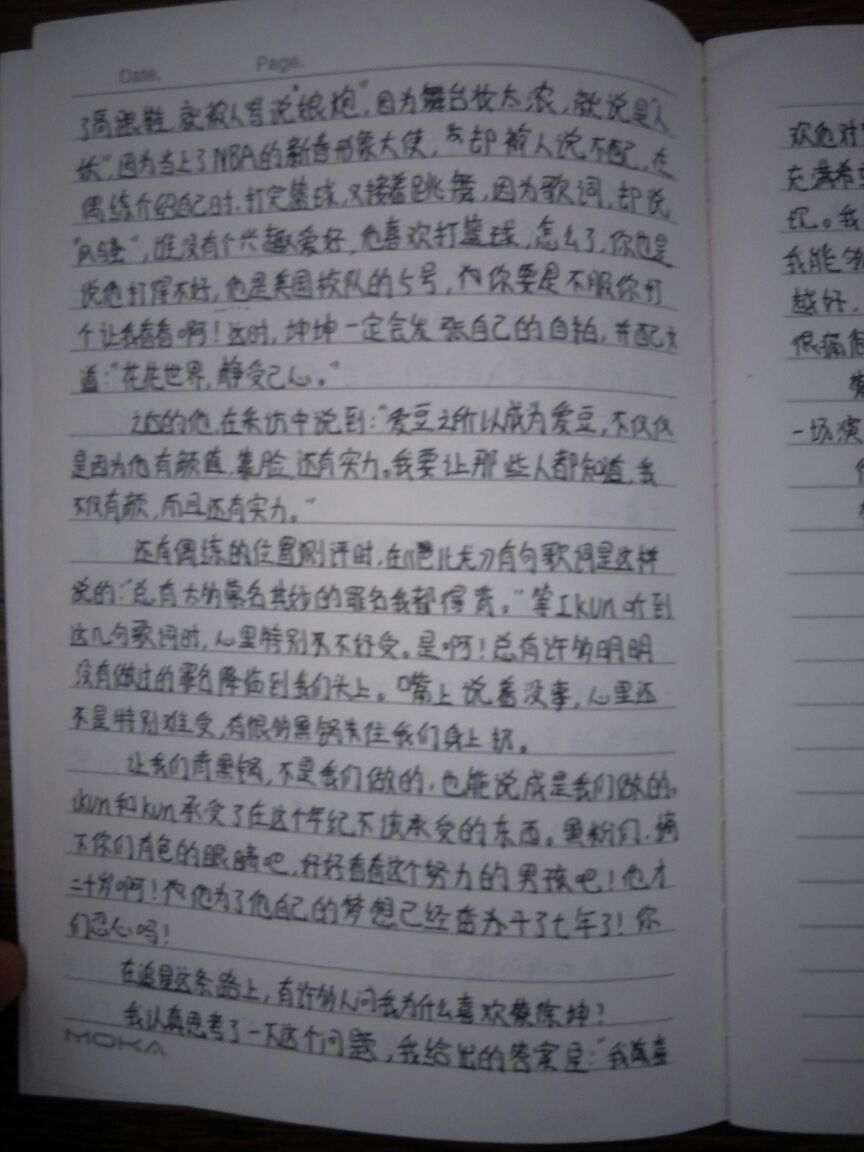 Date. Page.
了高跟鞋，就被人骂说"娘炮"，因为舞台妆太浓，就说是"人
妖"，因为当上了NBA的新春形象大使，却被人说不配，在
偶练介绍自己时，打完篮球，又接着跳舞，因为歌词，却说
"风骚"，谁没有个兴趣爱好，他喜欢打篮球，怎么了，你也是
说他打得不好，他是美国校队的5号，你要是不服你打
个让我看看啊！这时，坤坤一定会发张自己的自拍，并配文
道："花花世界，静受己心。"
之后的他，在采访中说到："爱豆之所以成为爱豆，不仅仅
是因为他有颜值，靠脸，还有实力。我要让那些人都知道，我
不仅有颜，而且还有实力。"
还有偶练的位置测评时，在有句歌词是这样
说的："总有太多莫名其妙的罪名我都得背。"等IKUN听到
这几句歌词时，心里特别不好受。是啊！总有许多明明
没有做过的罪名降临到我们头上。嘴上说着没事，心里还
不是特别难受，有很多黑锅未往我们身上抓。
让我们背黑锅，不是我们做的，也能说成是我们做的。
ikun和kun承受了在这个年纪不该承受的东西。黑粉们，摘
下你们有色的眼睛吧，好好看看这个努力的男孩吧！他才
二十岁啊！他为了他自己的梦想已经奋斗了七年了！你
们忍心吗！
在追星这条路上，有许多人问我为什么喜欢蔡徐坤？
我认真思考了一下这个问题，我给出的答案是："我喜
MOKA
欢他对
充满希
现。我
我能够
越好，
很痛
一场演